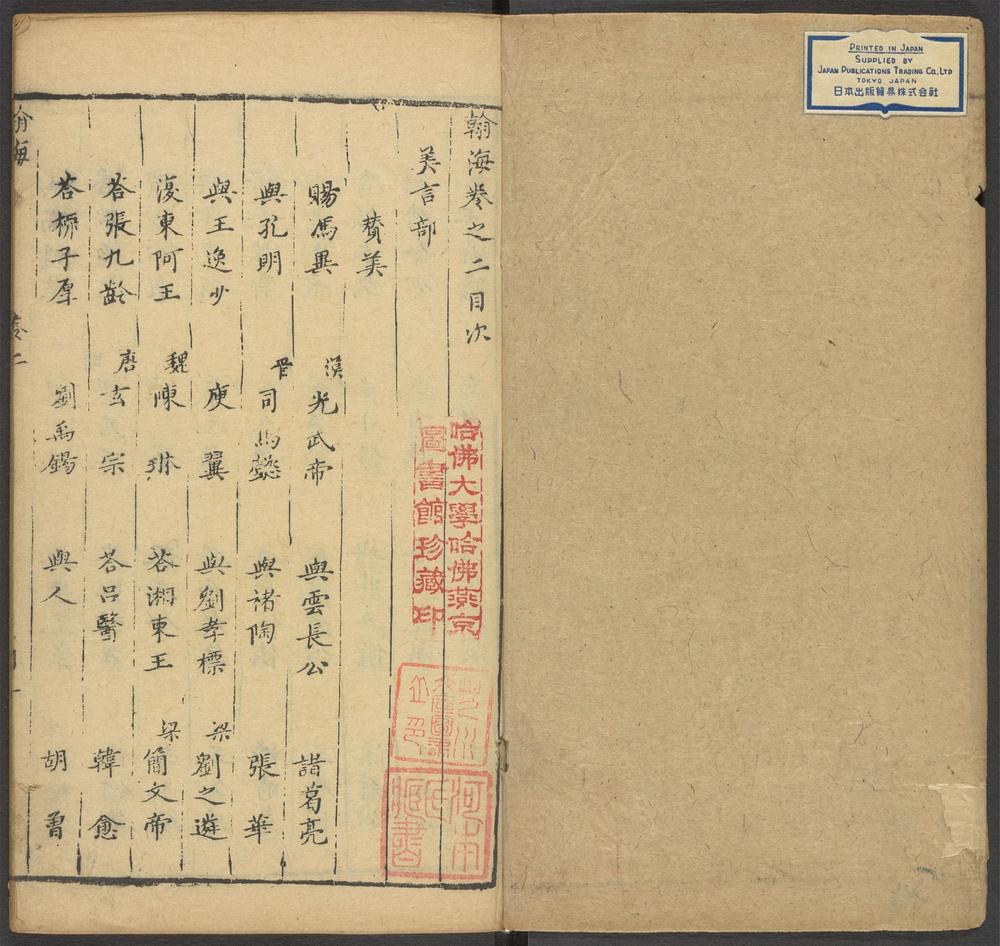 PRINTED IN JAPAN
SUPPLIED BY
JAPAN PUBLICATIONS TRADING CO., LTD
TOKYO JAPAN
日本出版貿易株式会社
翰海卷之二目次
美言部
賛美
賜馬異 漢光武帝 與雲長公 諸葛亮
與孔明 晉司馬懿 與禇陶 張華
與王逸少 庾翼 與劉孝標 梁劉之遴
復東阿王 魏陳琳 荅湘東王 梁簡文帝
荅張九齡 唐玄宗 荅呂毉 韓愈
荅栁子厚 劉禹錫 與人 胡曾
翰海 卷二
哈佛大學哈佛燕京
圖書館珍藏印